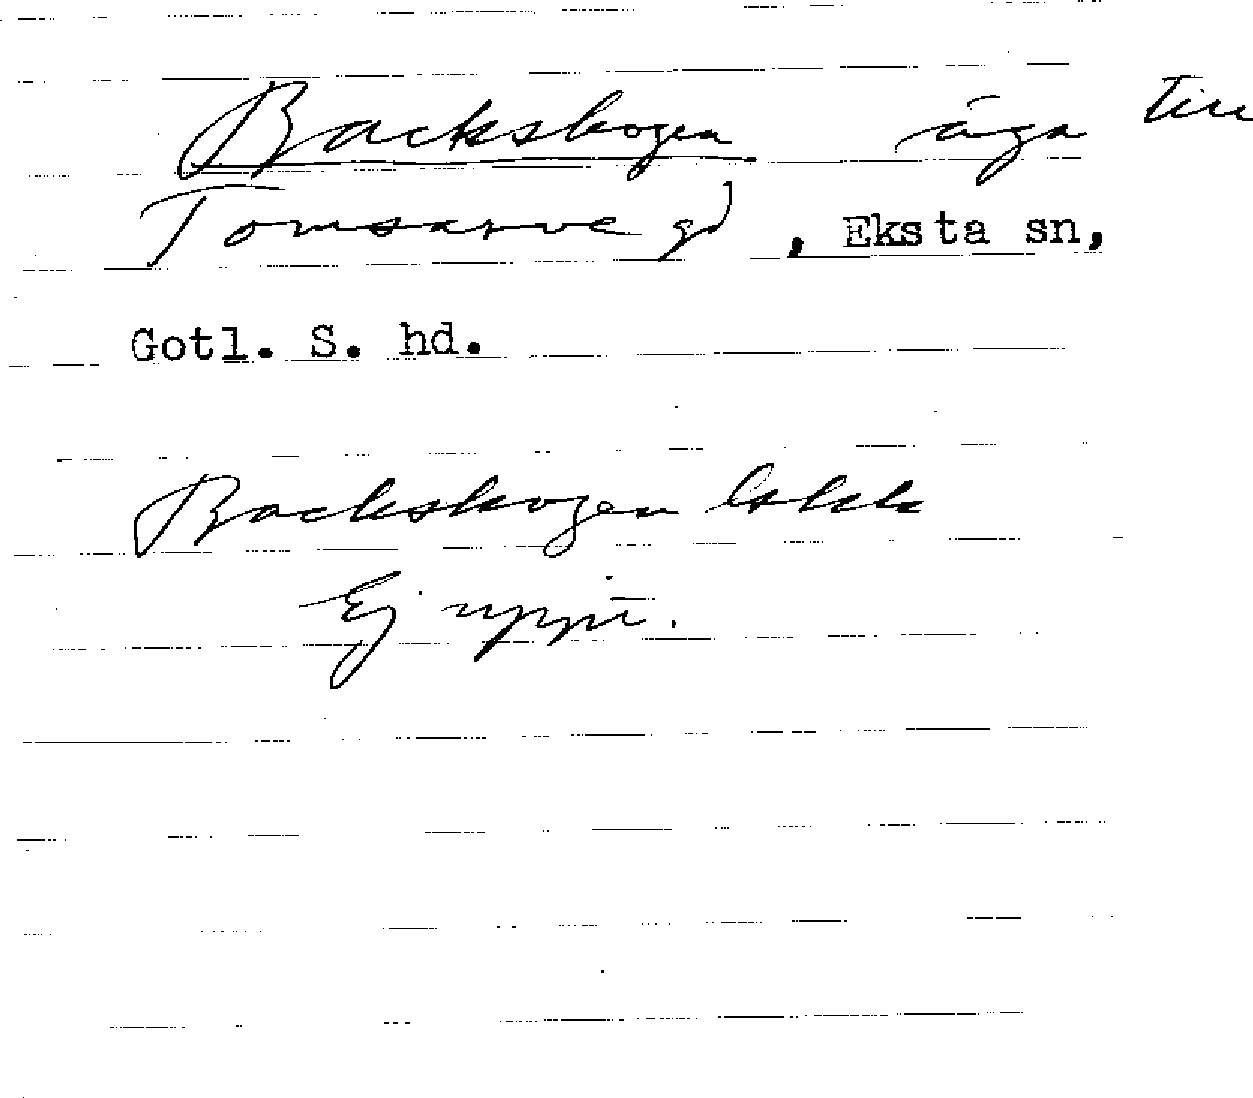 Backskogen äga till
Tomsarve gd, Eksta sn,
Gotl. S. hd.
Backskogen
Ej uppt.